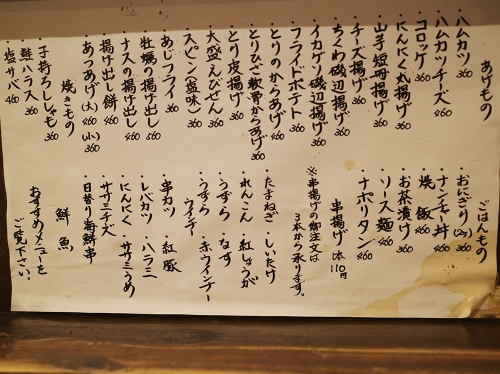 あげもの
・ハムカツ 360
・ハムカツチーズ 460
・コロッケ 360
・にんにく丸揚げ 360
・山芋短冊揚げ 360
・チーズ揚げ 360
・ちくわ磯辺揚げ 360
・イカゲソ磯辺揚げ 360
・フライドポテト 360
・とりのからあげ 460
・とりひざ軟骨からあげ 360
・とり皮揚げ 360
・大盛えびせん 360
・スピン(塩味) 360
・あじフライ 360
・牡蠣の揚げ出し 560
・ナスの揚げ出し 460
・揚げ出し餅 460
・あつあげ(大)460 (小)360
焼きもの
・子持ちししゃも 360
・鮭ハラス 360
・塩サバ 460
ごはんもの
・おにぎり(2ケ) 360
・ナンチャ丼 460
・焼飯 460
・お茶漬け 360
・ソース麺 460
・ナポリタン 460
串揚げ 1本110円
※串揚げの御注文は
3本から承ります。
・たまねぎ ・しいたけ
・れんこん ・紅しょうが
・うずら ・なす
・うずらウインナー ・赤ウインナー
・串カツ ・紅豚
・レバカツ ・ハラミ
・にんにく ・ササミうめ
・ササミチーズ
・日替り海鮮串
鮮魚
おすすめメニューを
ご覧下さい。